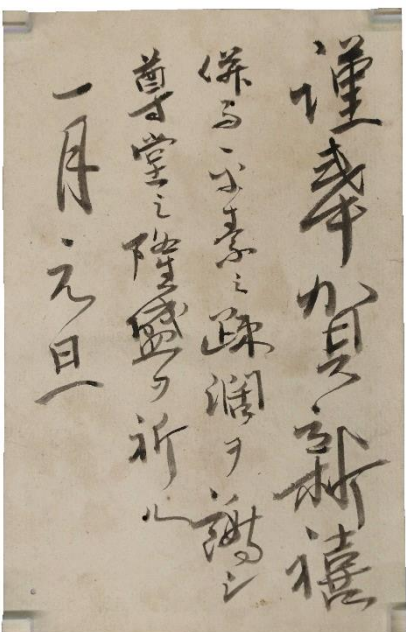 謹奉賀新禧
併而平素之疎濶ヲ謝シ
尊堂之隆盛ヲ祈ル
一月元旦